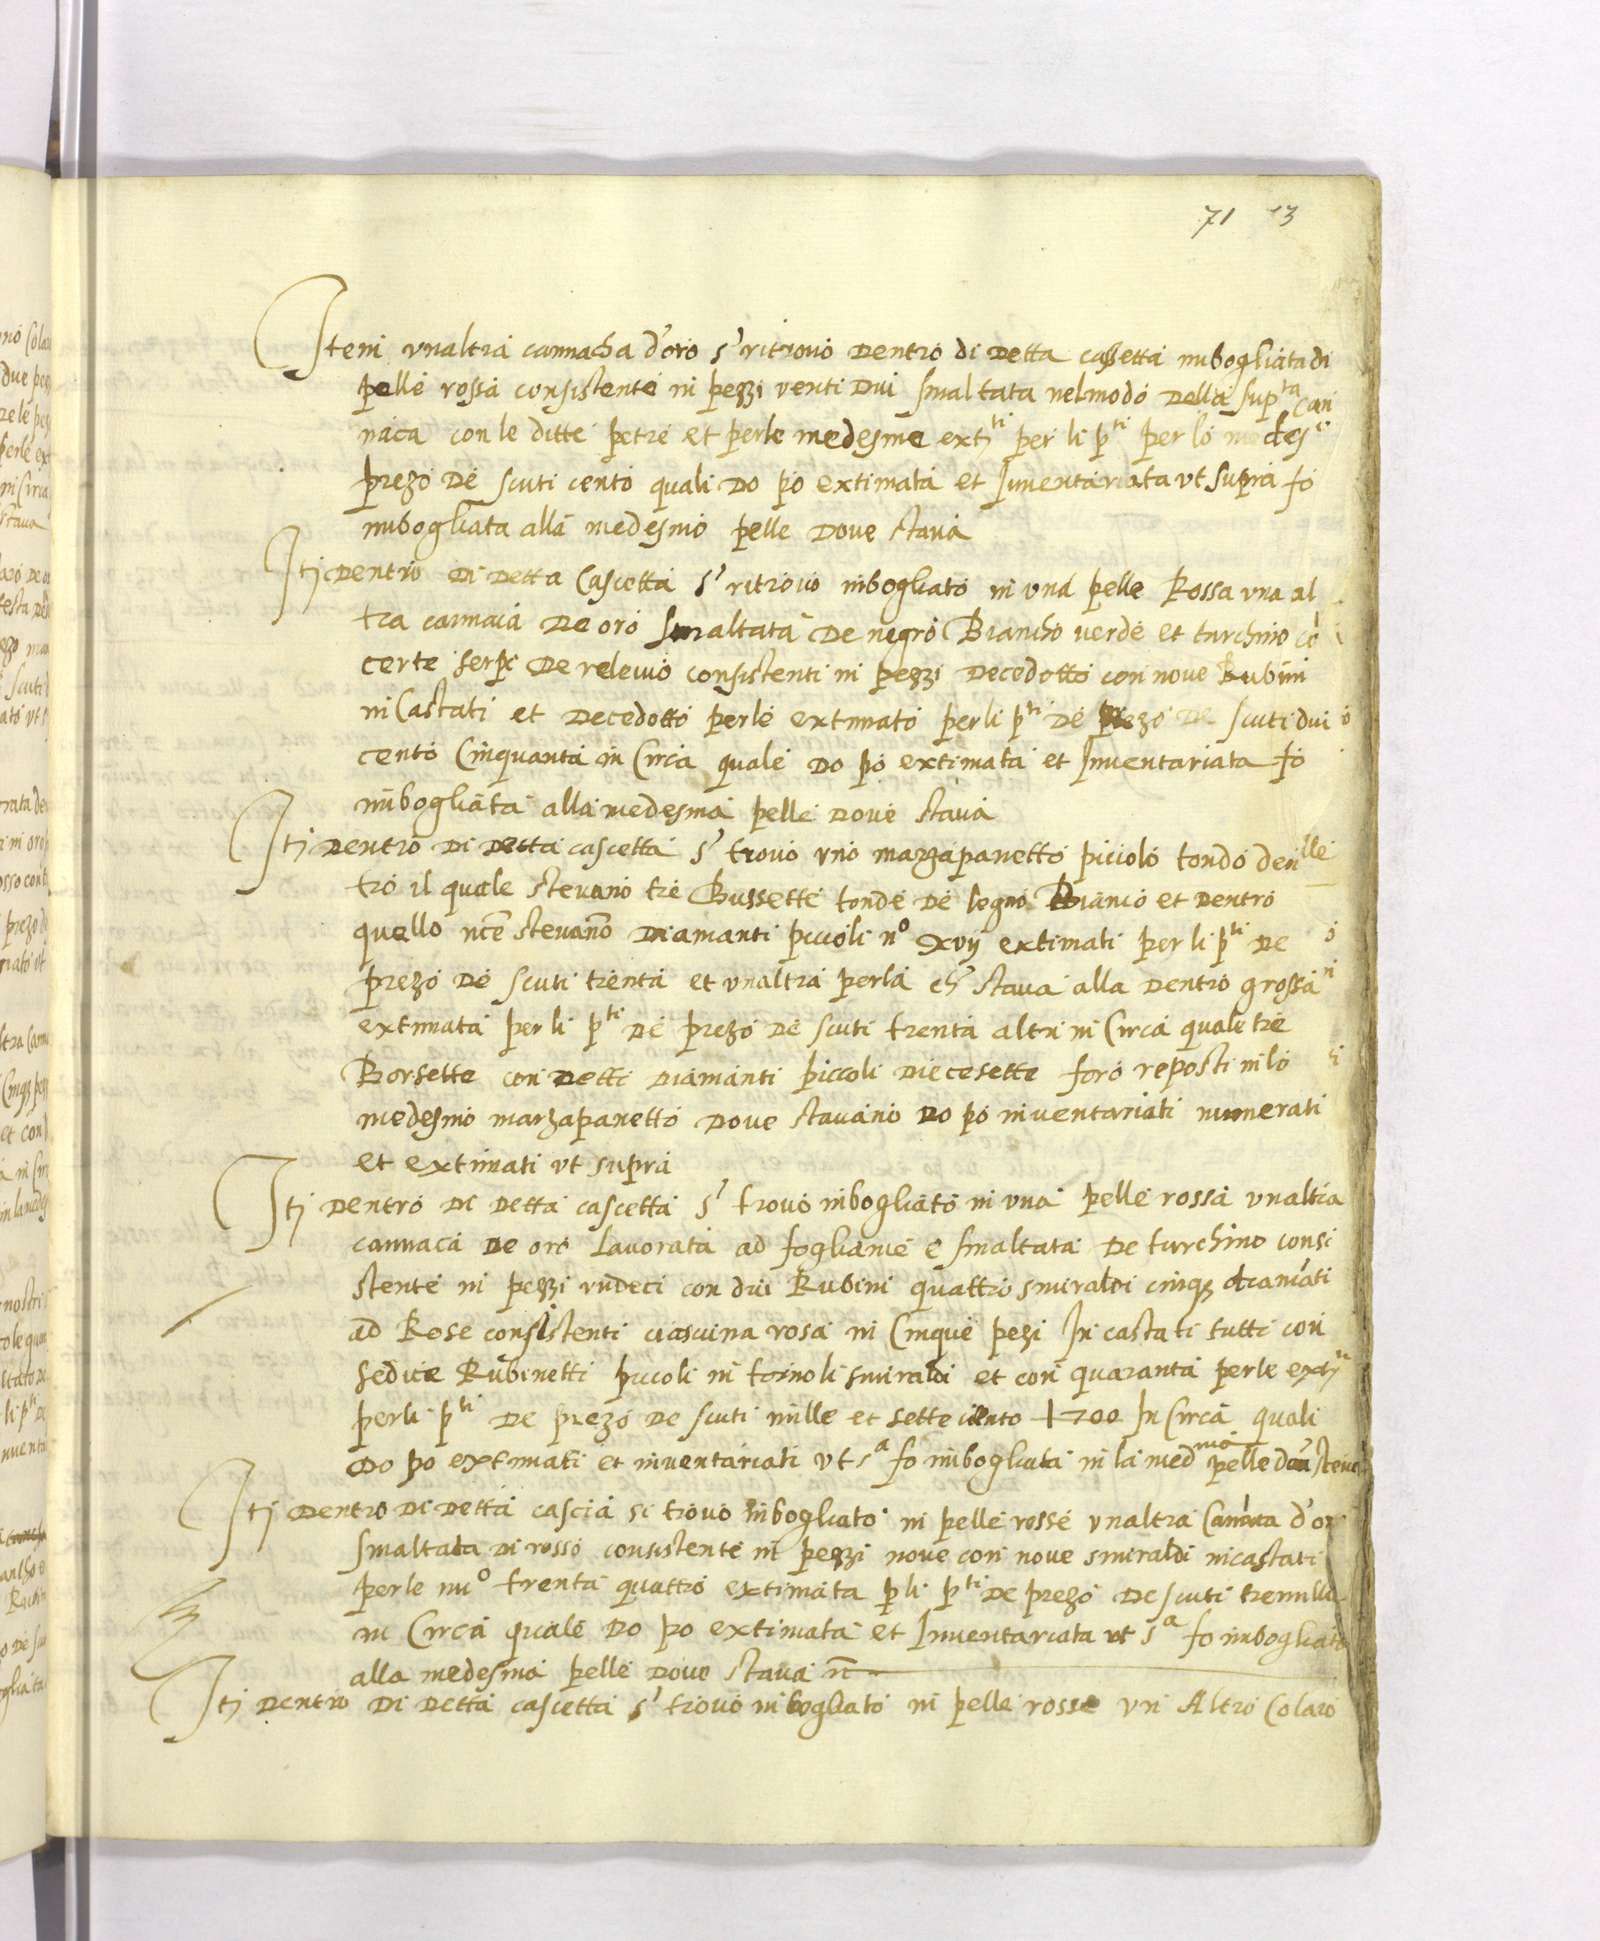 71 13
Item unaltra cannacha d'oro s' ritrovò dentro di detta cassetta imbogliata di
pelle rossa consistente in pezzi venti dui smaltata nel modo della sup.ta can
naca con le ditte petre et perle medesme ext.ti per li p.ti per lo medes.o
prezo de scuti cento quali do po extimata et Inventariata ut supra fo
imbogliata alla medesmo pelle dove stava
Itj dentro di detta Cascetta s' ritrovo inbogliato in una pelle Rossa una al
tra cannaca de oro smaltata de negro Biancho verde et turchino cō
certe serpe de relevio consistenti in pezzi decedotto con nove Rubini
in Castati et decedotto perle extimato per li p.ti de prezo de scuti dui
cento Cinquanta in Circa quale do po extimata et Inventariata fo
imbogliata alla medesma pelle dove stava
Itj dentro di detta cascetta s' trovò uno marzapanetto piciolo tondo den
tro il quale stevano tre Bussette tonde de legno Bianco et dentro
quello nce stevano diamanti piccoli n.o xvij extimati per li p.ti de
prezo de scuti trenta et unaltra perla ch' stava alla dentro grossa
extimata per li p.ti de prezo de scuti trenta altri in Circa quale tre
Borsette con detti diamanti piccoli diecesette foro reposti in lo
medesmo marzapanetto dove stavano do po inventariati numerati
et extimati ut supra
Itj dentro di detta cascetta s' trovò inbogliato in una pelle rossa unaltra
cannaca de oro Lavorata ad fogliame e smaltata de turchino consi
stente in pezzi undeci con dui Rubini quattro smiraldi cinq; diamāti
ad Rose consistenti ciascuna rosa in Cinque pezi In castati tutti con
sedice Rubinetti piccoli in tornoli smiraldi et con quaranta perle ext.ti
per li p.ti de prezo de scuti mille et sette cento 1700 In Circa quali
do po extimati et inventariati ut s.a fo imbogliata in la med.ma pelle
Itj dentro di detta cascia si trovò inbogliato in pelle rosse unaltra Cannaca d'or
smaltata di rosso consistente in pezzi nove con nove smiraldi incastati
perle nu.o trenta quattro extimata p li p.ti de prezo de scuti tremilla
in Circa quale do po extimata et Inventariata ut s.a fo imbogliato
alla medesma pelle dove stava
Itj dentro di detta cascetta s' trovò inbogliato in pelle rosse un Altro Colaro